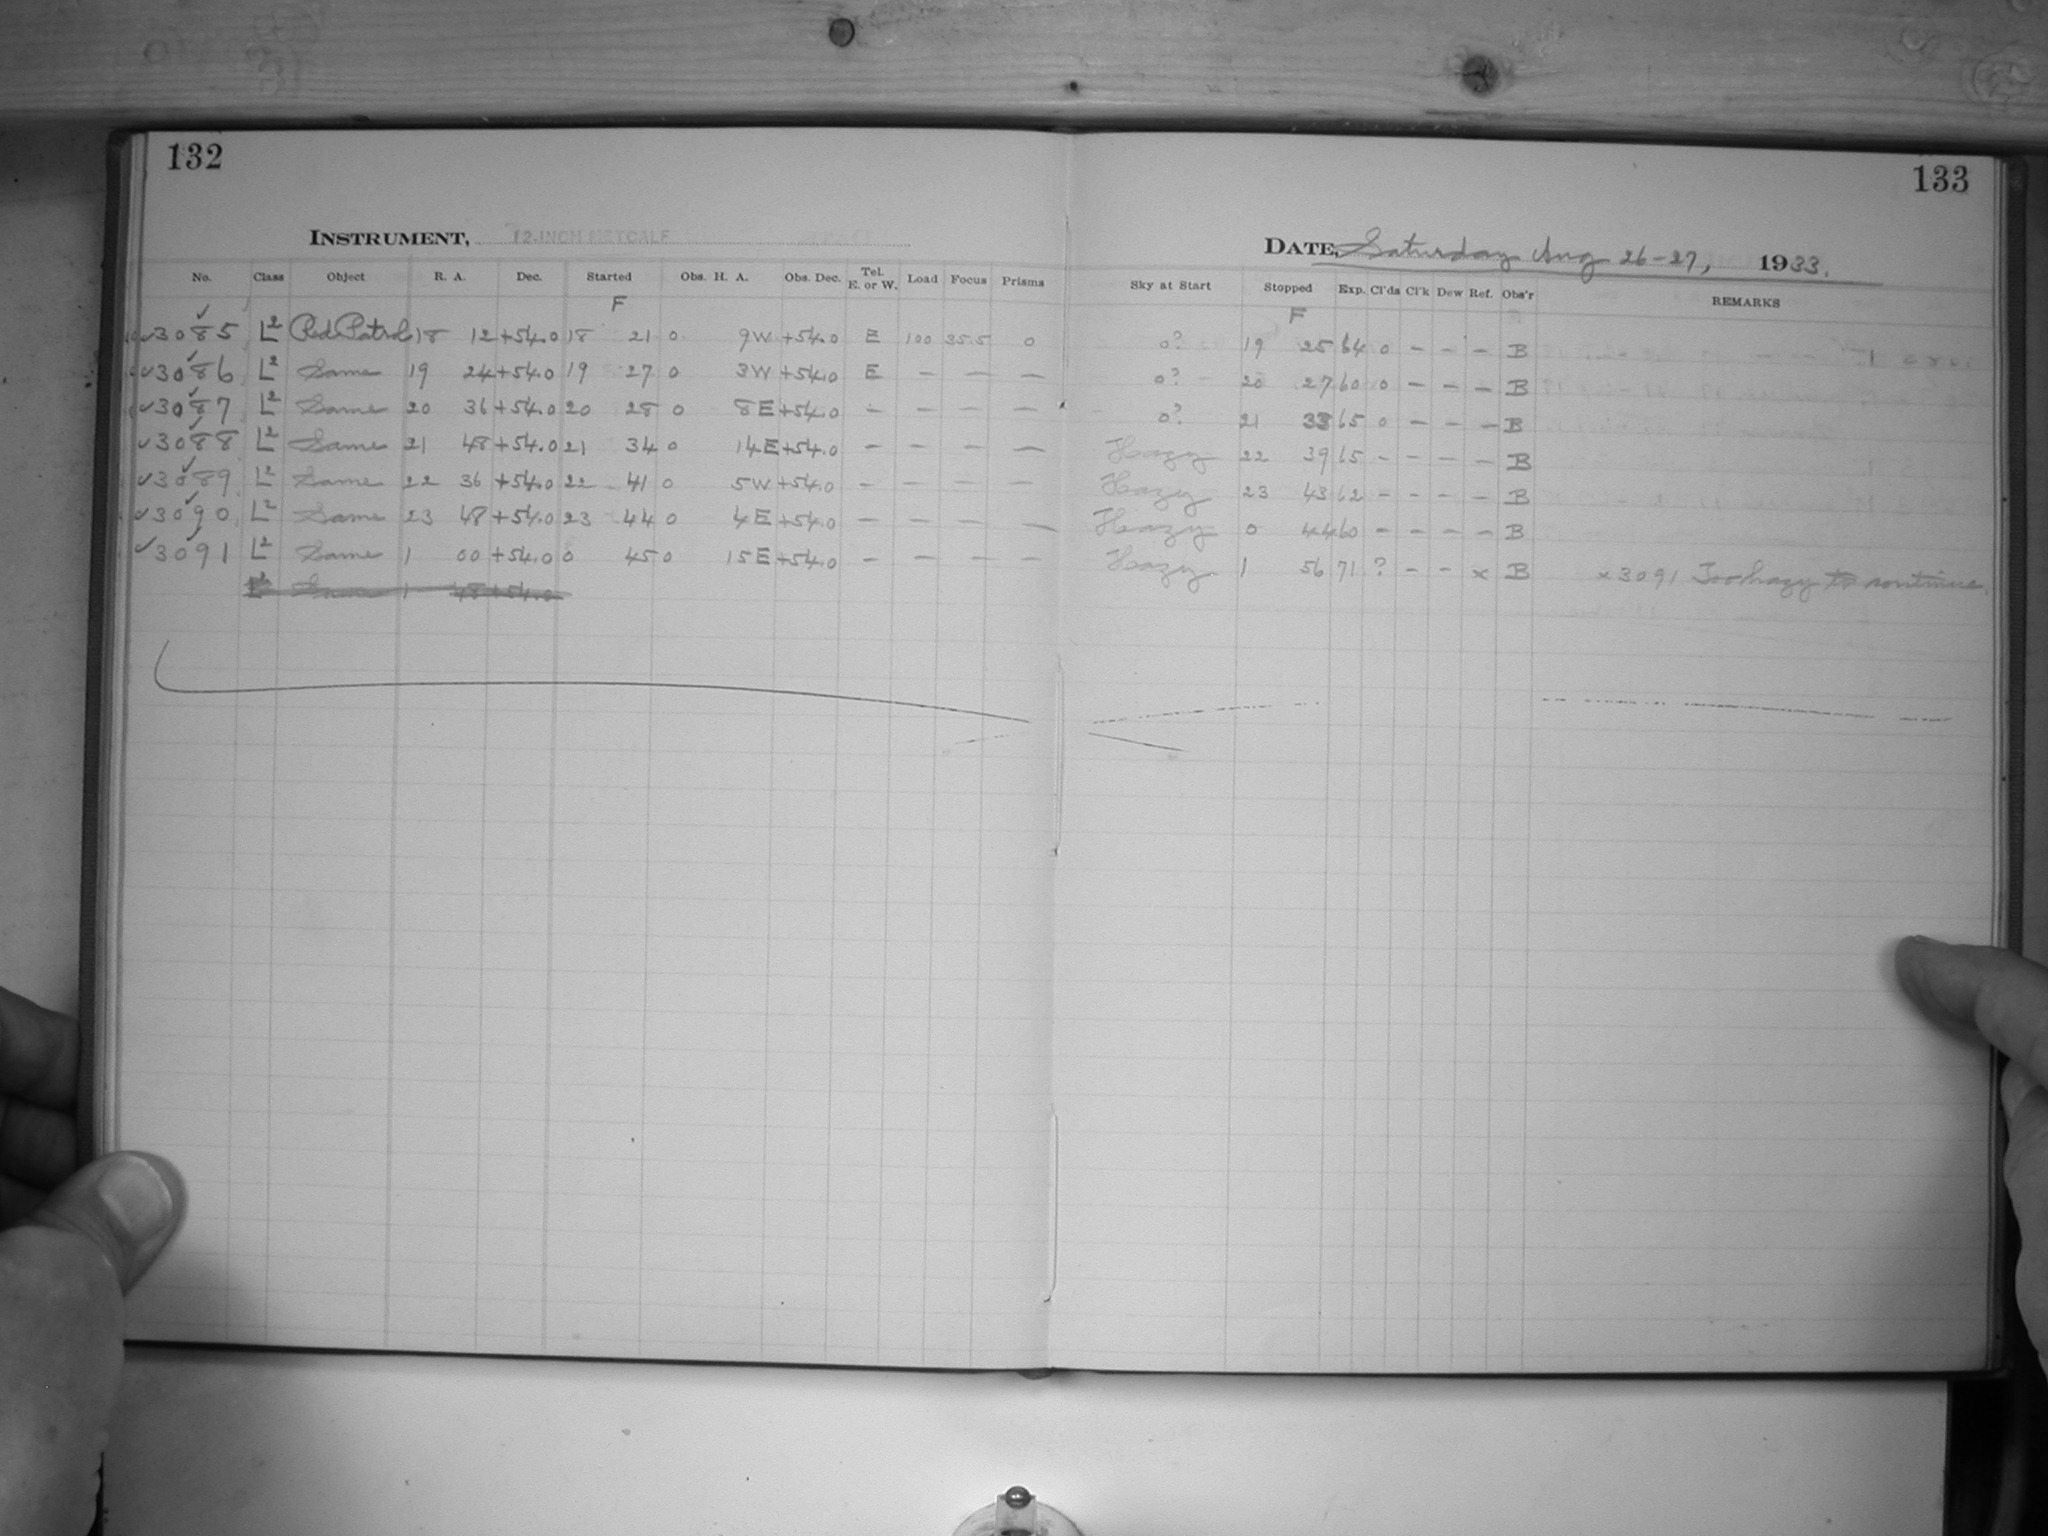 132
INSTRUMENT, 12-INCH METCALF
No. Class Object R. A. Dec. Started Obs. H. A. Obs. Dec. Tel. E. or W. Load Focus Prisms
F
✓3085 L2 Red Patrol 18 12 +54.0 18 21 0 9W +54.0 E 100 35.5 0
✓3086 L2 Same 19 24 +54.0 19 27 0 3W +54.0 E — — —
✓3087 L2 Same 20 36 +54.0 20 28 0 8E +54.0 — — — —
✓3088 L2 Same 21 48 +54.0 21 34 0 14E +54.0 — — — —
✓3089 L2 Same 22 36 +54.0 22 41 0 5W +54.0 — — — —
✓3090 L2 Same 23 48 +54.0 23 44 0 4E +54.0 — — — —
✓3091 L2 Same 1 00 +54.0 0 45 0 15E +54.0 — — — —
L2 Same 1 48 +54.0
133
DATE, Saturday Aug 26-27, 1933.
Sky at Start Stopped Exp. Cl'ds Cl'k Dew Ref. Obs'r REMARKS
F
0? 19 25 64 0 — — — B
0? 20 27 60 0 — — — B
0? 21 33 65 0 — — — B
Hazy 22 39 65 — — — — B
Hazy 23 43 62 — — — — B
Hazy 0 44 60 — — — — B
Hazy 1 56 71 ? — — x B x 3091 Too hazy to continue.